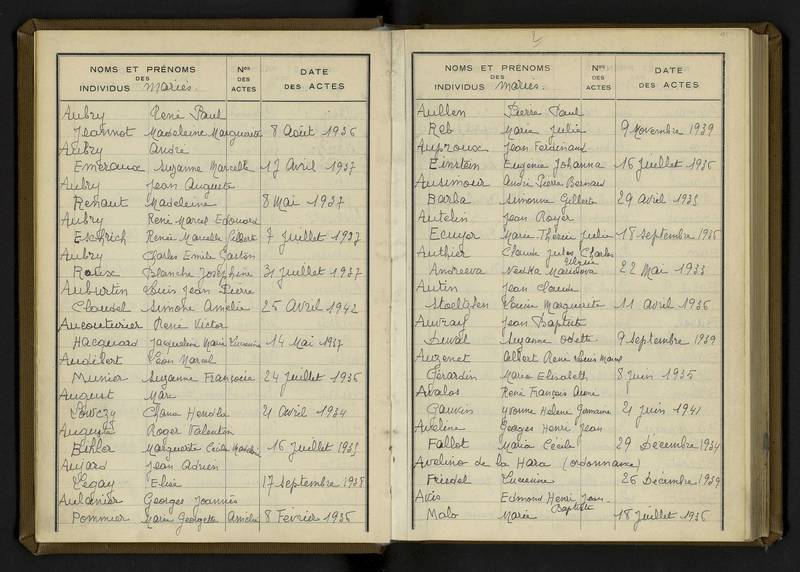 NOMS ET PRÉNOMS DES INDIVIDUS Mariés. Nos DES ACTES DATE DES ACTES
Aubry René Paul
Jeannot Madeleine Marguerite 8 Août 1936
Aubry André
Emeraux Suzanne Marcelle 17 Avril 1937
Aubry Jean Auguste
Renaut Madeleine 8 Mai 1937
Aubry René Marcel Edouard
Eschrich Renée Marcelle Gilberte 7 Juillet 1937
Aubry Charles Emile Gaston
Roux Blanche Joséphine 31 Juillet 1937
Auburtin Louis Jean Pierre
Claudel Simone Amélie 25 Avril 1942
Aucouturier René Victor
Hacquard Jacqueline Marie Lucienne 14 Mai 1937
Audibert Léon Marcel
Munier Suzanne Françoise 24 Juillet 1936
August Marc
Lowczy Chana Hendla 21 Avril 1934
Auguste Roger Valentin
Bihler Marguerite Cécile 16 Juillet 1935
Aujard Jean Adrien
Legay Elise 17 Septembre 1938
Aulanier Georges Joannès
Pommier Marie Georgette Amélie 8 Février 1936
2
NOMS ET PRÉNOMS DES INDIVIDUS Mariés. Nos DES ACTES DATE DES ACTES
Aullen Pierre Paul
Reb Marie Julie 9 Novembre 1939
Auproux Jean Ferdinand
Einstein Eugenie Johanna 16 Juillet 1936
André Pierre Bernard
Barba Simonne Gilberte 29 Avril 1935
Autelin Jean Roger
Ecuyer Marie Thérèse Julie 18 Septembre 1936
Authier Claude Jules Charles
Andreeva 22 Mai 1933
Autin Jean Claude
Louise Marguerite 11 Avril 1936
Auvray Jean Baptiste
Duval Suzanne Odette 9 Septembre 1939
Auzenet Albert René Louis
Gérardin Marie Elisabeth 8 Juin 1935
Avalos René François
Gauvin Yvonne Hélène Germaine 21 Juin 1941
Aveline Georges Henri Jean
Fallot Maria Cécile 29 Décembre 1934
Avelino de la Hara (ordonnance)
Friedel Lucienne 26 Décembre 1939
Avis Edmond Henri Jean Baptiste
Malo Marie 18 Juillet 1936